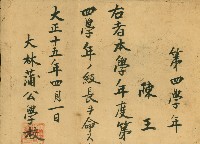 第四學年
陳王
右者本學年度第
四學年ノ級長ヲ命ス
大正十五年四月一日
大林蒲公學校